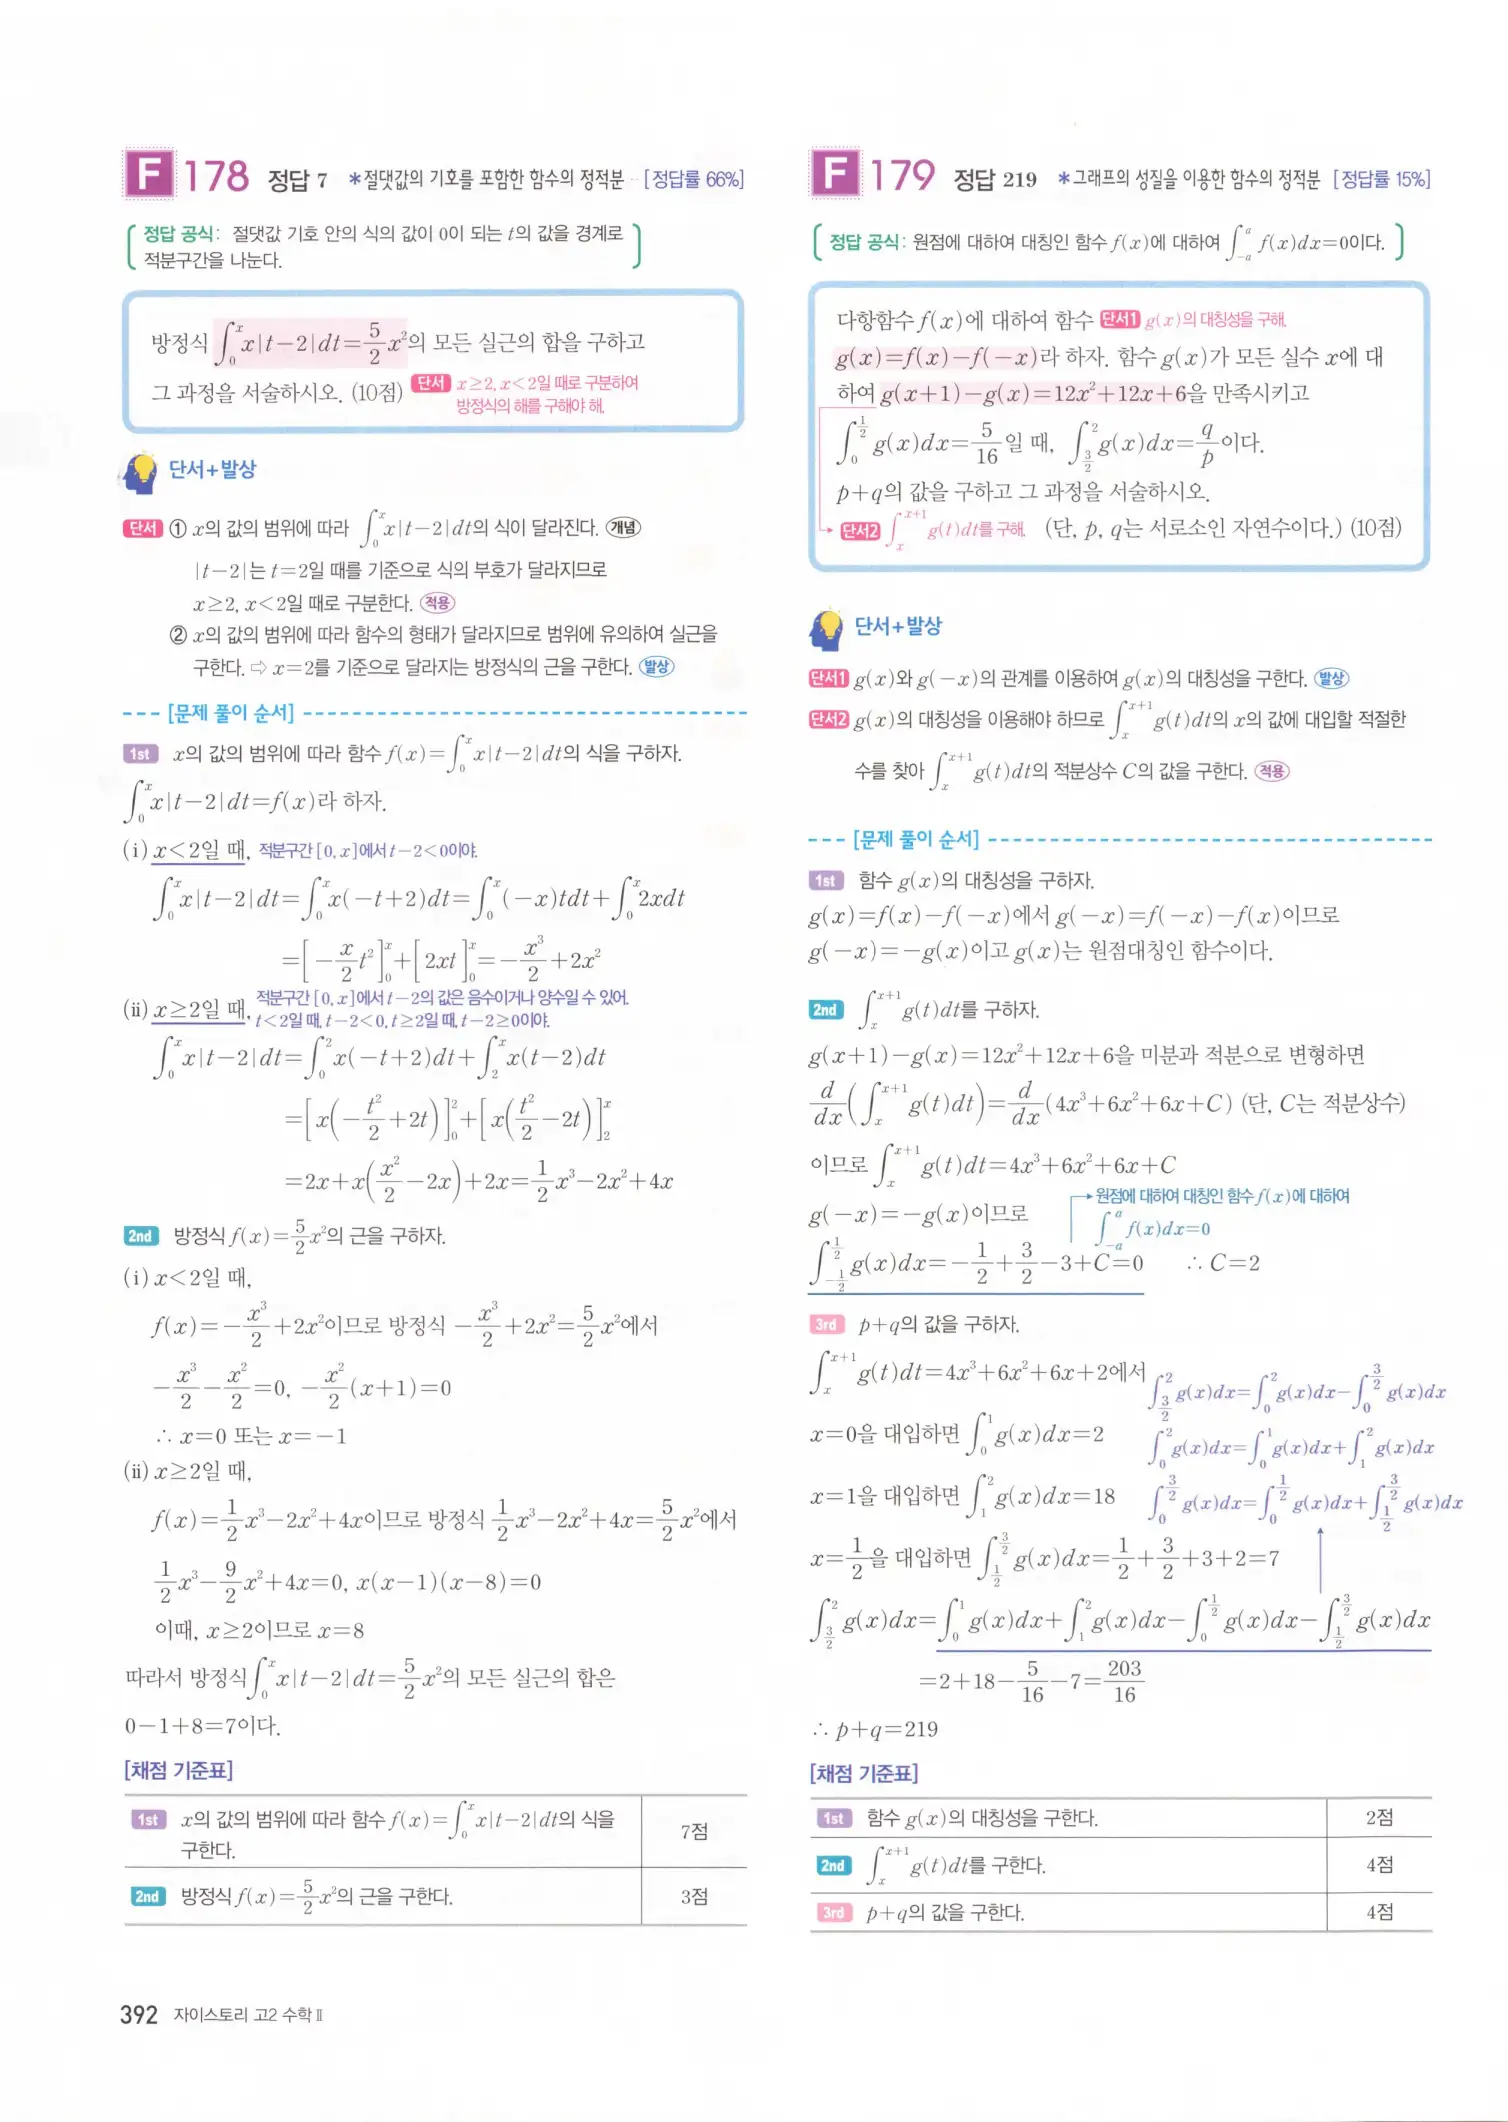 F 178 정답 7 *절댓값의 기호를 포함한 함수의 정적분 ·· [정답률 66%]
정답 공식: 절댓값 기호 안의 식의 값이 0이 되는 t의 값을 경계로
적분구간을 나눈다.
방정식 ∫₀ˣ x|t−2|dt=5/2 x²의 모든 실근의 합을 구하고
그 과정을 서술하시오. (10점) 단서 x≥2, x<2일 때로 구분하여
방정식의 해를 구해야 해.
단서+발상
단서 ① x의 값의 범위에 따라 ∫₀ˣ x|t−2|dt의 식이 달라진다. (개념)
|t−2|는 t=2일 때를 기준으로 식의 부호가 달라지므로
x≥2, x<2일 때로 구분한다. (적용)
② x의 값의 범위에 따라 함수의 형태가 달라지므로 범위에 유의하여 실근을
구한다. ⇨ x=2를 기준으로 달라지는 방정식의 근을 구한다. (발상)
--- [문제 풀이 순서] ---
1st x의 값의 범위에 따라 함수 f(x)=∫₀ˣ x|t−2|dt의 식을 구하자.
∫₀ˣ x|t−2|dt=f(x)라 하자.
(i) x<2일 때, 적분구간 [0, x]에서 t−2<0이야.
∫₀ˣ x|t−2|dt=∫₀ˣ x(−t+2)dt=∫₀ˣ (−x)tdt+∫₀ˣ 2xdt
=[−x/2 t²]₀ˣ+[2xt]₀ˣ=−x³/2+2x²
(ii) x≥2일 때, 적분구간 [0, x]에서 t−2의 값은 음수이거나 양수일 수 있어.
t<2일 때, t−2<0, t≥2일 때, t−2≥0이야.
∫₀ˣ x|t−2|dt=∫₀² x(−t+2)dt+∫₂ˣ x(t−2)dt
=[x(−t²/2+2t)]₀²+[x(t²/2−2t)]₂ˣ
=2x+x(x²/2−2x)+2x=1/2 x³−2x²+4x
2nd 방정식 f(x)=5/2 x²의 근을 구하자.
(i) x<2일 때,
f(x)=−x³/2+2x²이므로 방정식 −x³/2+2x²=5/2 x²에서
−x³/2−x²/2=0, −x²/2(x+1)=0
∴ x=0 또는 x=−1
(ii) x≥2일 때,
f(x)=1/2 x³−2x²+4x이므로 방정식 1/2 x³−2x²+4x=5/2 x²에서
1/2 x³−9/2 x²+4x=0, x(x−1)(x−8)=0
이때, x≥2이므로 x=8
따라서 방정식 ∫₀ˣ x|t−2|dt=5/2 x²의 모든 실근의 합은
0−1+8=7이다.
[채점 기준표]
1st x의 값의 범위에 따라 함수 f(x)=∫₀ˣ x|t−2|dt의 식을
구한다. 7점
2nd 방정식 f(x)=5/2 x²의 근을 구한다. 3점
F 179 정답 219 *그래프의 성질을 이용한 함수의 정적분 [정답률 15%]
정답 공식: 원점에 대하여 대칭인 함수 f(x)에 대하여 ∫₋ₐᵃ f(x)dx=0이다.
다항함수 f(x)에 대하여 함수 단서1 g(x)의 대칭성을 구해.
g(x)=f(x)−f(−x)라 하자. 함수 g(x)가 모든 실수 x에 대
하여 g(x+1)−g(x)=12x²+12x+6을 만족시키고
∫₀^(1/2) g(x)dx=5/16일 때, ∫_(3/2)^2 g(x)dx=q/p이다.
p+q의 값을 구하고 그 과정을 서술하시오.
단서2 ∫ₓ^(x+1) g(t)dt를 구해. (단, p, q는 서로소인 자연수이다.) (10점)
단서+발상
단서1 g(x)와 g(−x)의 관계를 이용하여 g(x)의 대칭성을 구한다. (발상)
단서2 g(x)의 대칭성을 이용해야 하므로 ∫ₓ^(x+1) g(t)dt의 x의 값에 대입할 적절한
수를 찾아 ∫ₓ^(x+1) g(t)dt의 적분상수 C의 값을 구한다. (적용)
--- [문제 풀이 순서] ---
1st 함수 g(x)의 대칭성을 구하자.
g(x)=f(x)−f(−x)에서 g(−x)=f(−x)−f(x)이므로
g(−x)=−g(x)이고 g(x)는 원점대칭인 함수이다.
2nd ∫ₓ^(x+1) g(t)dt를 구하자.
g(x+1)−g(x)=12x²+12x+6을 미분과 적분으로 변형하면
d/dx(∫ₓ^(x+1) g(t)dt)=d/dx(4x³+6x²+6x+C) (단, C는 적분상수)
이므로 ∫ₓ^(x+1) g(t)dt=4x³+6x²+6x+C
g(−x)=−g(x)이므로
원점에 대하여 대칭인 함수 f(x)에 대하여
∫₋ₐᵃ f(x)dx=0
∫_(−1/2)^(1/2) g(x)dx=−1/2+3/2−3+C=0 ∴ C=2
3rd p+q의 값을 구하자.
∫ₓ^(x+1) g(t)dt=4x³+6x²+6x+2에서
x=0을 대입하면 ∫₀¹ g(x)dx=2
x=1을 대입하면 ∫₁² g(x)dx=18
x=1/2을 대입하면 ∫_(1/2)^(3/2) g(x)dx=1/2+3/2+3+2=7
∫_(3/2)^2 g(x)dx=∫₀² g(x)dx−∫₀^(3/2) g(x)dx
∫₀² g(x)dx=∫₀¹ g(x)dx+∫₁² g(x)dx
∫₀^(3/2) g(x)dx=∫₀^(1/2) g(x)dx+∫_(1/2)^(3/2) g(x)dx
∫_(3/2)^2 g(x)dx=∫₀¹ g(x)dx+∫₁² g(x)dx−∫₀^(1/2) g(x)dx−∫_(1/2)^(3/2) g(x)dx
=2+18−5/16−7=203/16
∴ p+q=219
[채점 기준표]
1st 함수 g(x)의 대칭성을 구한다. 2점
2nd ∫ₓ^(x+1) g(t)dt를 구한다. 4점
3rd p+q의 값을 구한다. 4점
392 자이스토리 고2 수학 Ⅱ